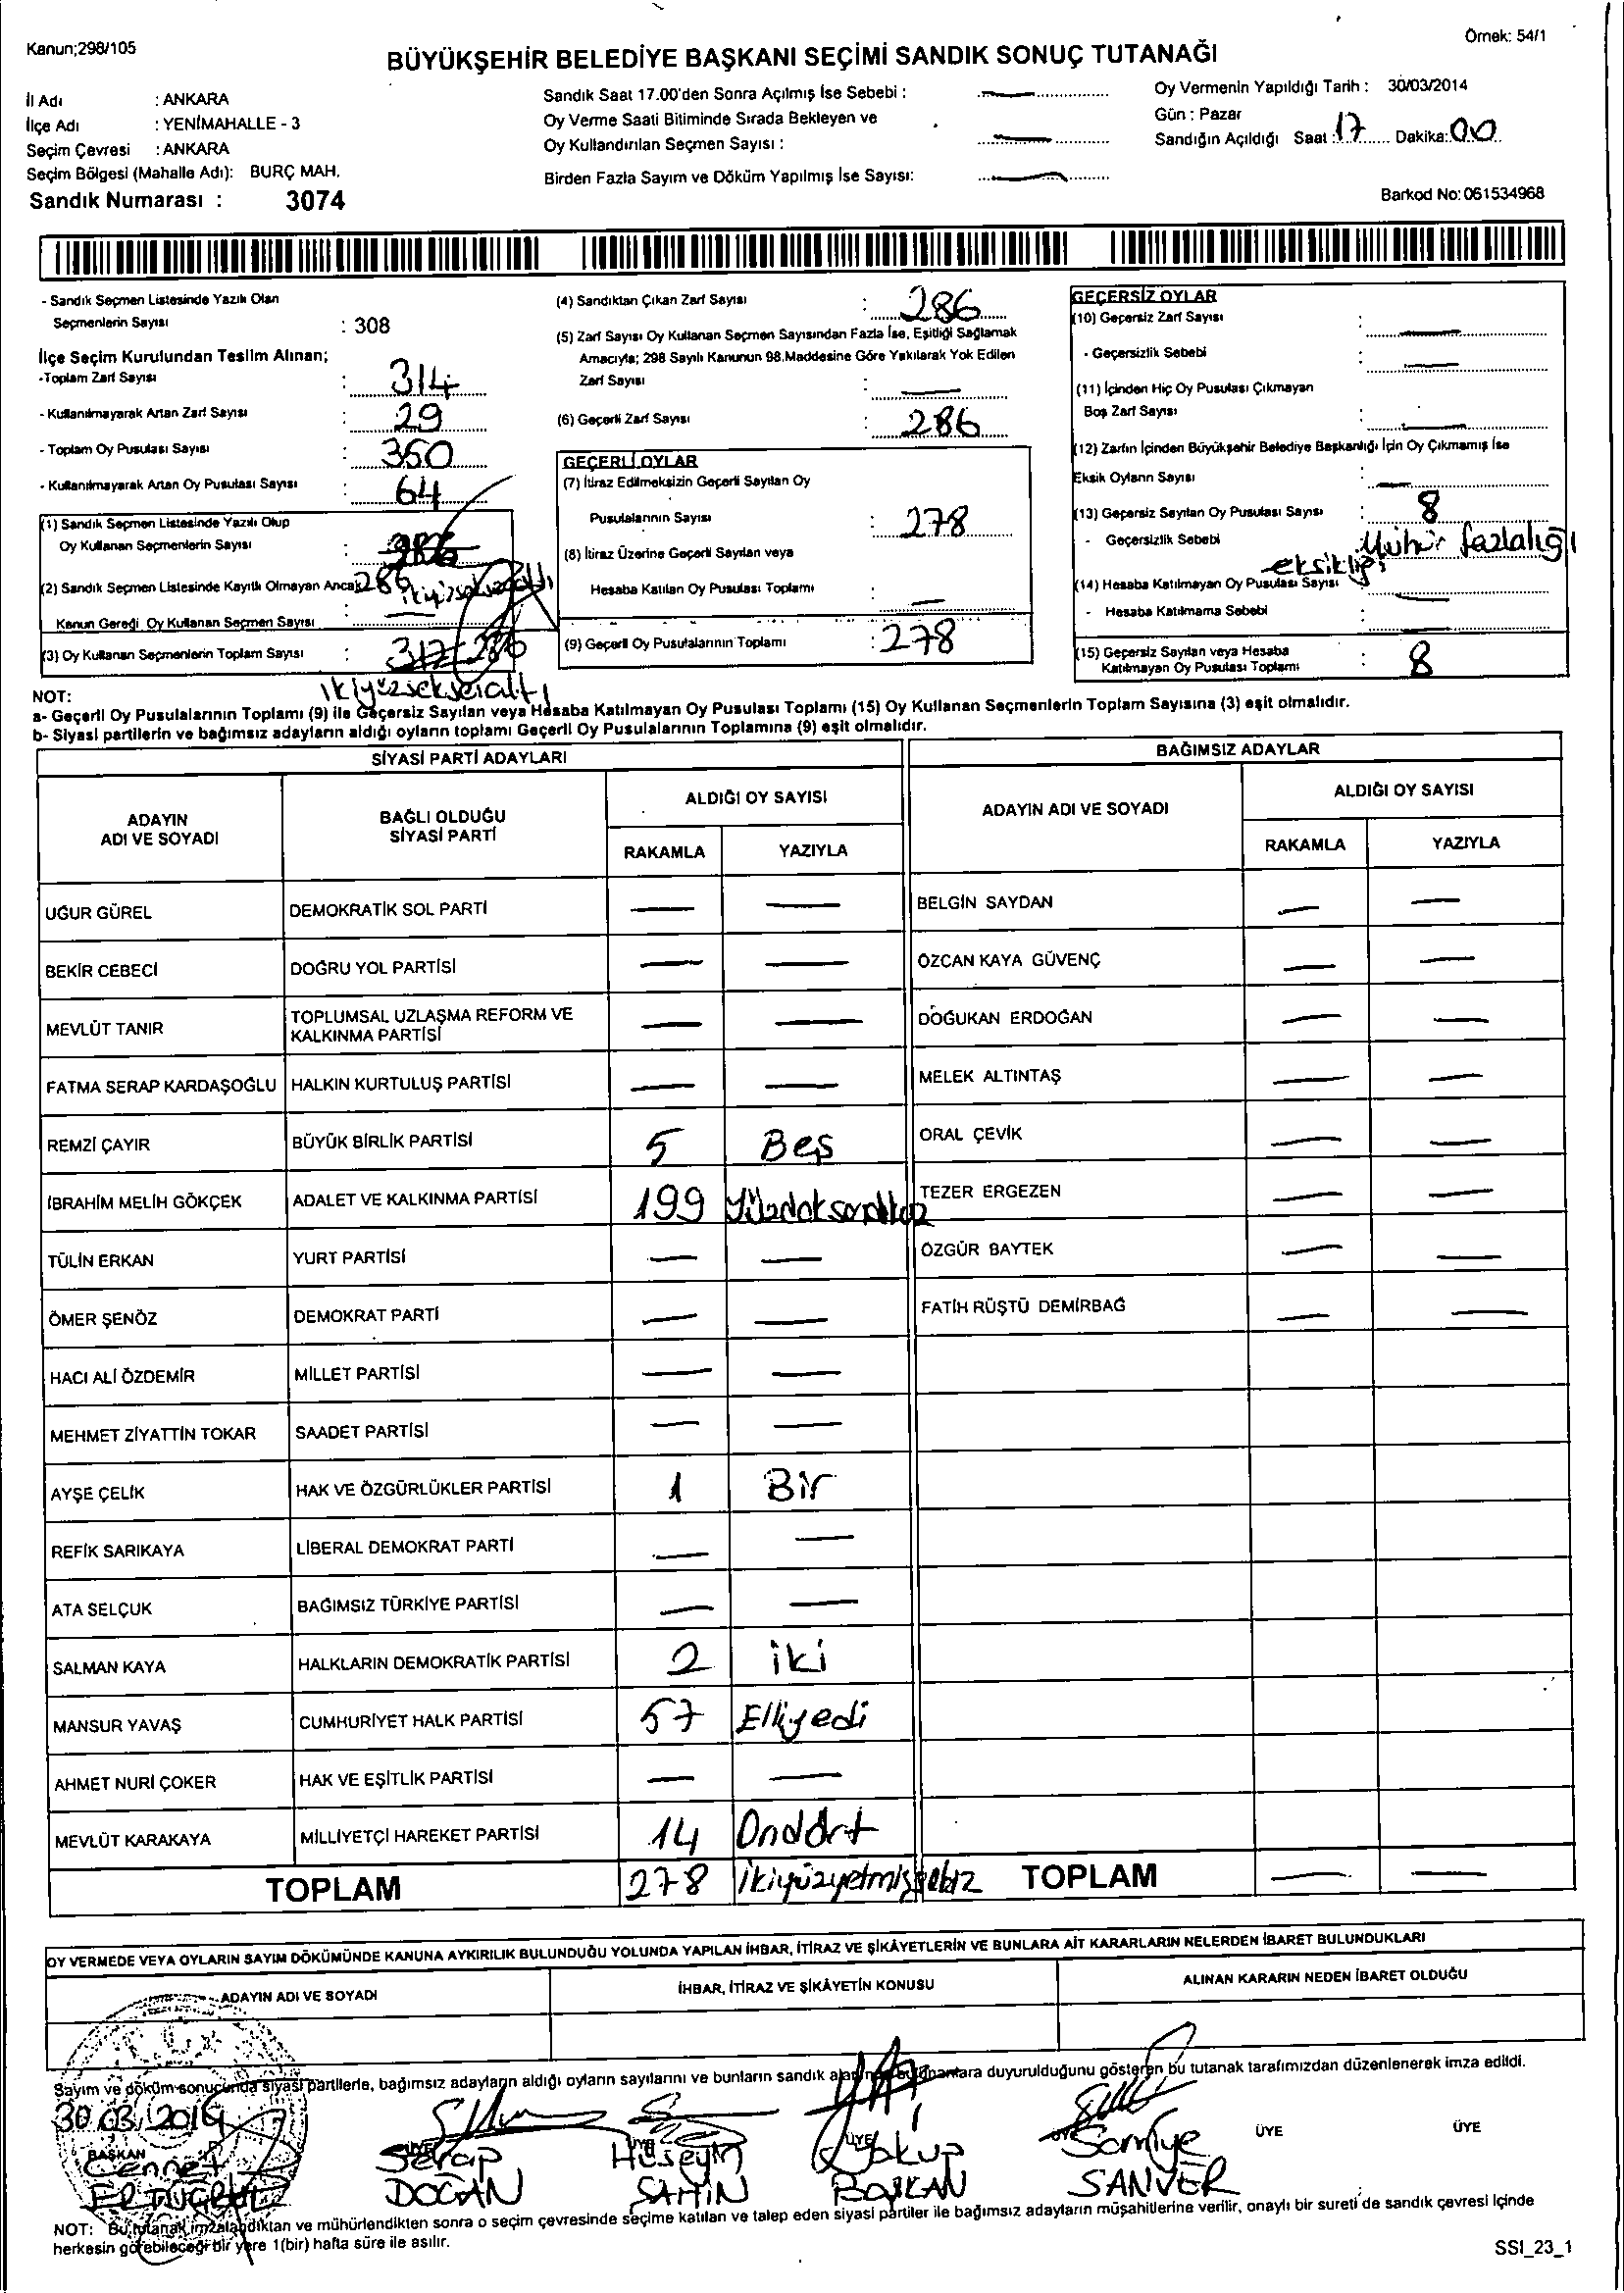 Kanun;298/105
Örnek: 54/1
BÜYÜKŞEHİR BELEDİYE BAŞKANI SEÇİMİ SANDIK SONUÇ TUTANAĞI
İl Adı : ANKARA
İlçe Adı : YENİMAHALLE - 3
Seçim Çevresi : ANKARA
Seçim Bölgesi (Mahalle Adı): BURÇ MAH.
Sandık Numarası : 3074
Sandık Saat 17.00'den Sonra Açılmış İse Sebebi :
Oy Verme Saati Bitiminde Sırada Bekleyen ve
Oy Kullandırılan Seçmen Sayısı :
Birden Fazla Sayım ve Döküm Yapılmış İse Sayısı:
Oy Vermenin Yapıldığı Tarih : 30/03/2014
Gün : Pazar
Sandığın Açıldığı Saat : 17 Dakika: 00
Barkod No: 061534968
- Sandık Seçmen Listesinde Yazılı Olan
Seçmenlerin Sayısı : 308
İlçe Seçim Kurulundan Teslim Alınan;
-Toplam Zarf Sayısı : 314
- Kullanılmayarak Artan Zarf Sayısı : 29
- Toplam Oy Pusulası Sayısı : 350
- Kullanılmayarak Artan Oy Pusulası Sayısı : 64
(1) Sandık Seçmen Listesinde Yazılı Olup
Oy Kullanan Seçmenlerin Sayısı : 286
(2) Sandık Seçmen Listesinde Kayıtlı Olmayan Ancak 286
Kanun Gereği Oy Kullanan Seçmen Sayısı :
(3) Oy Kullanan Seçmenlerin Toplam Sayısı : 317 286
ikiyüzseksenaltı
(4) Sandıktan Çıkan Zarf Sayısı : 286
(5) Zarf Sayısı Oy Kullanan Seçmen Sayısından Fazla İse, Eşitliği Sağlamak
Amacıyla; 298 Sayılı Kanunun 98.Maddesine Göre Yakılarak Yok Edilen
Zarf Sayısı :
(6) Geçerli Zarf Sayısı : 286
GEÇERLİ OYLAR
(7) İtiraz Edilmeksizin Geçerli Sayılan Oy
Pusulalarının Sayısı : 278
(8) İtiraz Üzerine Geçerli Sayılan veya
Hesaba Katılan Oy Pusulası Toplamı :
(9) Geçerli Oy Pusulalarının Toplamı : 278
GEÇERSİZ OYLAR
(10) Geçersiz Zarf Sayısı :
- Geçersizlik Sebebi :
(11) İçinden Hiç Oy Pusulası Çıkmayan
Boş Zarf Sayısı :
(12) Zarfın İçinden Büyükşehir Belediye Başkanlığı İçin Oy Çıkmamış İse
Eksik Oyların Sayısı :
(13) Geçersiz Sayılan Oy Pusulası Sayısı : 8
- Geçersizlik Sebebi : Mühür fazlalığı
eksikliği
(14) Hesaba Katılmayan Oy Pusulası Sayısı :
- Hesaba Katılmama Sebebi :
(15) Geçersiz Sayılan veya Hesaba
Katılmayan Oy Pusulası Toplamı : 8
NOT:
a- Geçerli Oy Pusulalarının Toplamı (9) ile Geçersiz Sayılan veya Hesaba Katılmayan Oy Pusulası Toplamı (15) Oy Kullanan Seçmenlerin Toplam Sayısına (3) eşit olmalıdır.
b- Siyasi partilerin ve bağımsız adayların aldığı oyların toplamı Geçerli Oy Pusulalarının Toplamına (9) eşit olmalıdır.
SİYASİ PARTİ ADAYLARI
BAĞIMSIZ ADAYLAR
ADAYIN
ADI VE SOYADI
BAĞLI OLDUĞU
SİYASİ PARTİ
ALDIĞI OY SAYISI
RAKAMLA YAZIYLA
ADAYIN ADI VE SOYADI
ALDIĞI OY SAYISI
RAKAMLA YAZIYLA
UĞUR GÜREL DEMOKRATİK SOL PARTİ BELGİN SAYDAN
BEKİR CEBECİ DOĞRU YOL PARTİSİ ÖZCAN KAYA GÜVENÇ
MEVLÜT TANIR TOPLUMSAL UZLAŞMA REFORM VE
KALKINMA PARTİSİ DOĞUKAN ERDOĞAN
FATMA SERAP KARDAŞOĞLU HALKIN KURTULUŞ PARTİSİ MELEK ALTINTAŞ
REMZİ ÇAYIR BÜYÜK BİRLİK PARTİSİ 5 Beş ORAL ÇEVİK
İBRAHİM MELİH GÖKÇEK ADALET VE KALKINMA PARTİSİ 199 Yüzdoksandokuz TEZER ERGEZEN
TÜLİN ERKAN YURT PARTİSİ ÖZGÜR BAYTEK
ÖMER ŞENÖZ DEMOKRAT PARTİ FATİH RÜŞTÜ DEMİRBAĞ
HACI ALİ ÖZDEMİR MİLLET PARTİSİ
MEHMET ZİYATTİN TOKAR SAADET PARTİSİ
AYŞE ÇELİK HAK VE ÖZGÜRLÜKLER PARTİSİ 1 Bir
REFİK SARIKAYA LİBERAL DEMOKRAT PARTİ
ATA SELÇUK BAĞIMSIZ TÜRKİYE PARTİSİ
SALMAN KAYA HALKLARIN DEMOKRATİK PARTİSİ 2 iki
MANSUR YAVAŞ CUMHURİYET HALK PARTİSİ 57 Elliyedi
AHMET NURİ ÇOKER HAK VE EŞİTLİK PARTİSİ
MEVLÜT KARAKAYA MİLLİYETÇİ HAREKET PARTİSİ 14 Ondört
TOPLAM 278 ikiyüzyetmişsekiz TOPLAM
OY VERMEDE VEYA OYLARIN SAYIM DÖKÜMÜNDE KANUNA AYKIRILIK BULUNDUĞU YOLUNDA YAPILAN İHBAR, İTİRAZ VE ŞİKÂYETLERİN VE BUNLARA AİT KARARLARIN NELERDEN İBARET BULUNDUKLARI
ADAYIN ADI VE SOYADI
İHBAR, İTİRAZ VE ŞİKÂYETİN KONUSU
ALINAN KARARIN NEDEN İBARET OLDUĞU
Sayım ve döküm sonucunda siyasi partilerle, bağımsız adayların aldığı oyların sayılarını ve bunların sandık alanında bulunanlara duyurulduğunu gösteren bu tutanak tarafımızdan düzenlenerek imza edildi.
30.03.2014
BAŞKAN ÜYE ÜYE ÜYE ÜYE ÜYE ÜYE
Cennet Serap Hüseyin Yakup Samiye
ERTUĞRUL DOĞAN ŞAHİN BAŞKAN SANVER
NOT: Bu tutanak imzalandıktan ve mühürlendikten sonra o seçim çevresinde seçime katılan ve talep eden siyasi partiler ile bağımsız adayların müşahitlerine verilir, onaylı bir sureti de sandık çevresi içinde
herkesin görebileceği bir yere 1(bir) hafta süre ile asılır.
SSI_23_1